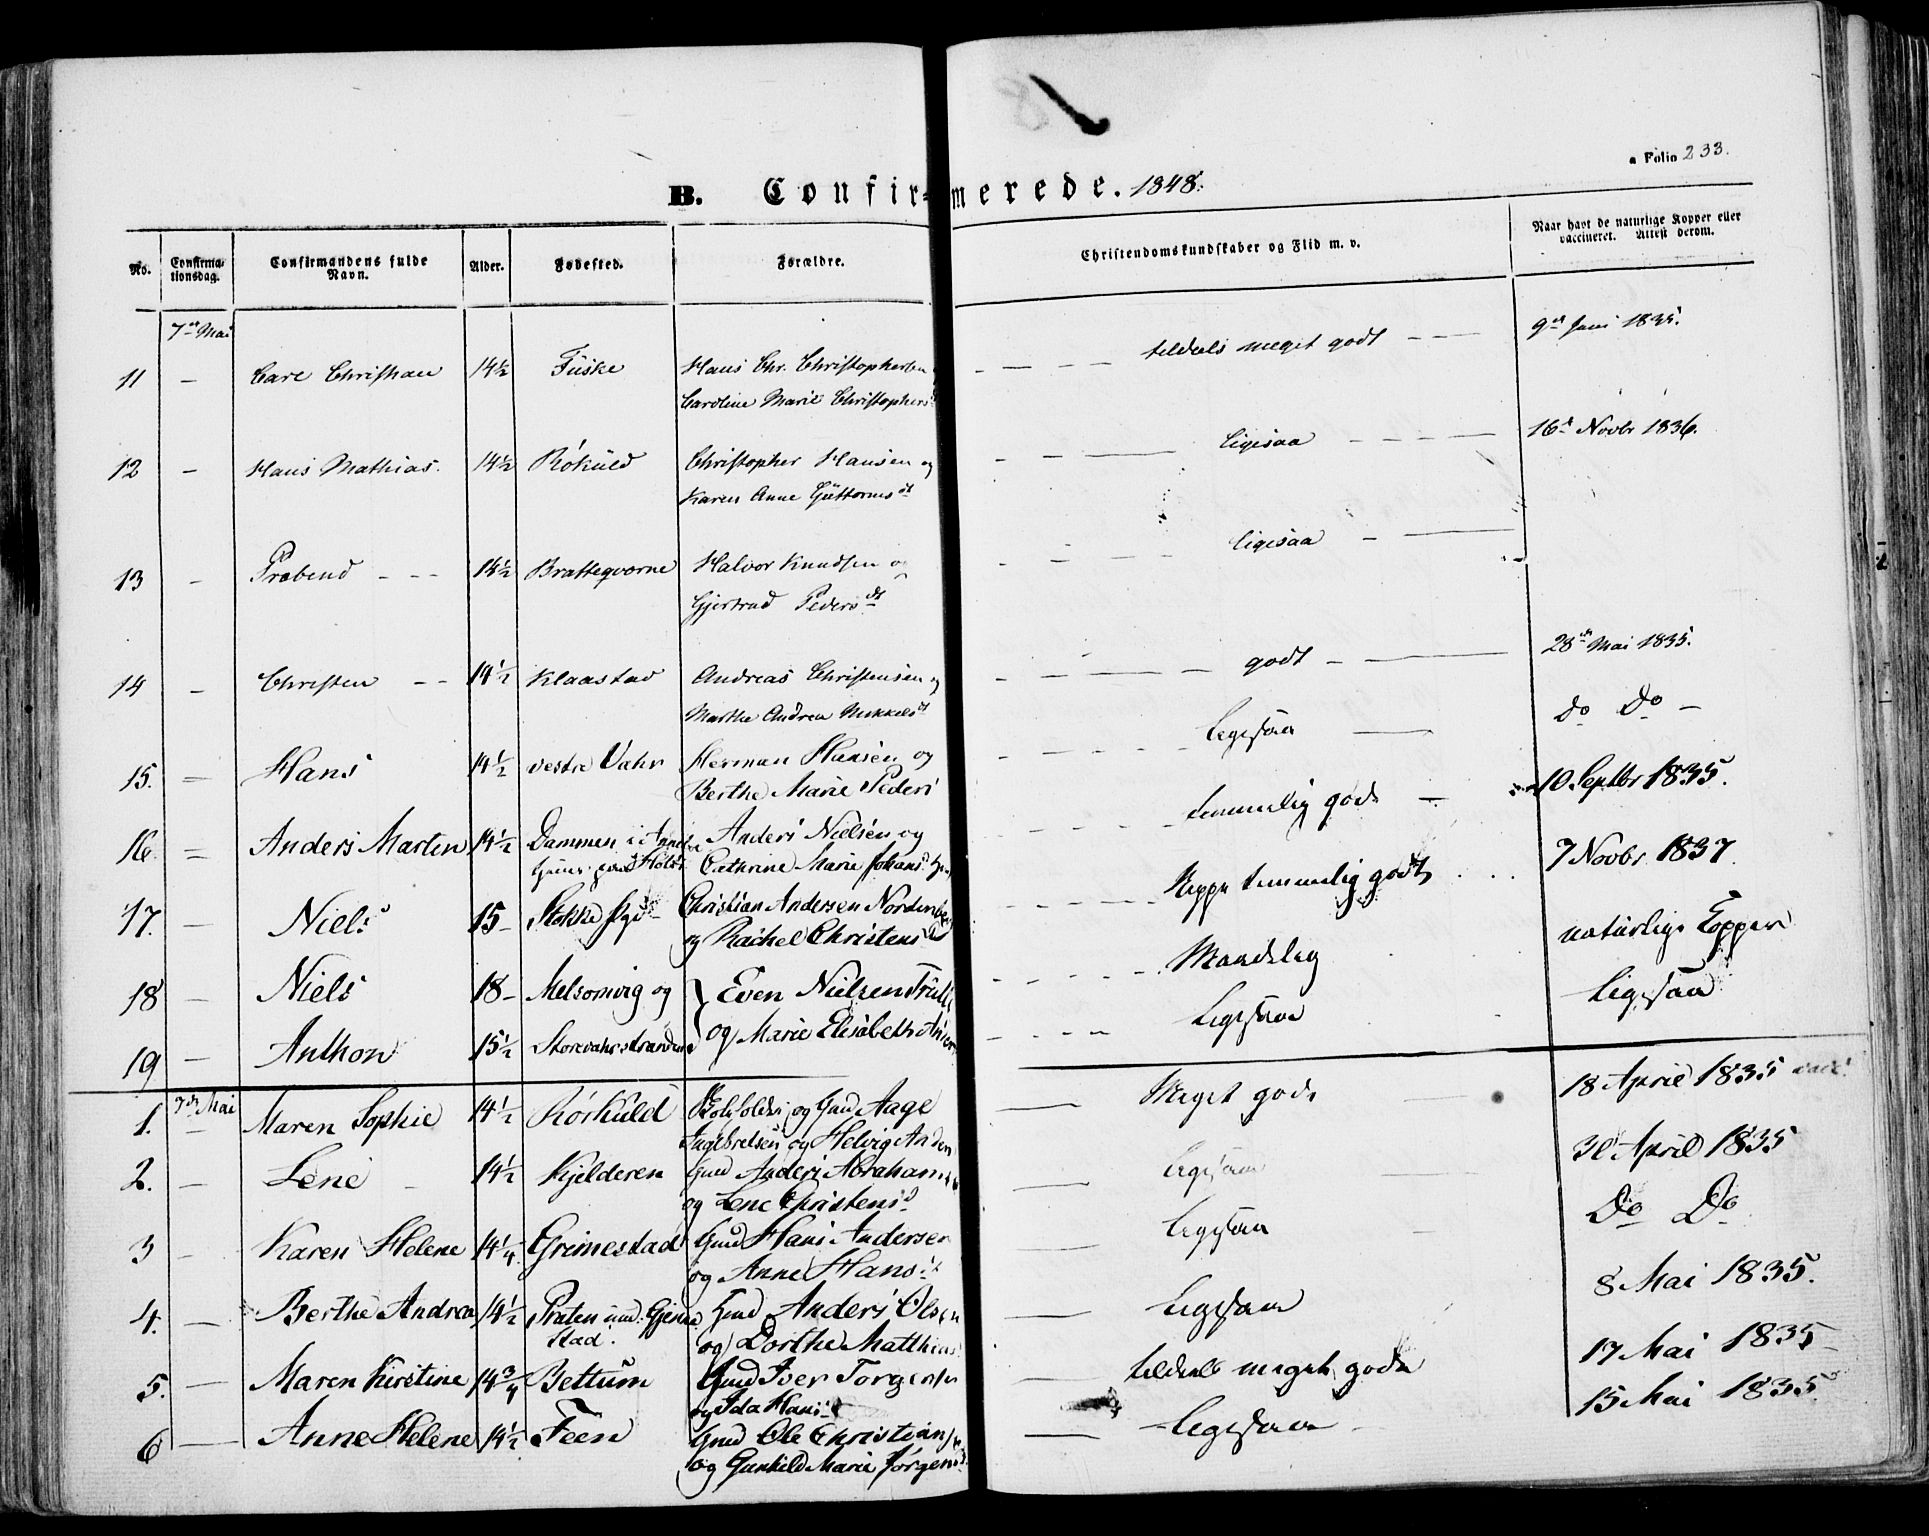 a Folio 233.
B. Confirmerede. 1848.
No. Confirmationsdag. Confirmandens fulde Navn. Alder. Fødested. Forældre. Christendomskundskaber og Flid m. v. Naar havt de naturlige Kopper eller vaccineret. Attest derom.
7de Mai
11 - Carl Christian 14½ Fuske Hans Chr. Christophersen Caroline Marie Christophers tildels meget godt 9de Juni 1835.
12 - Hans Mathias. 14½ Rökuld Christopher Hansen og Karen Anne Guttormsdt ligesaa 16de Novbr 1836.
13 - Prebend 14½ Bratteqvorne Halvor Knudsen og Gjertrud Pedersdt ligesaa
14 - Christen 14½ Klaastad Andreas Christensen og Marthe Andrea Mikkelsdt godt 28de Mai 1835.
15. - Hans 14½ vestre Vahr Herman Hansen og Berthe Marie Peders Ligesaa Do Do -
16. Anders Marten 14½ Dammen i Anders Nielsen og Cathrine Marie Johans temmelig godt 10 Septbr 1835.
17. - Niels 15 - Stokke Christian Andersen og Rachel Christens Neppe temmelig godt 7 Novbr 1837.
18 - Niels 18 - Melsomvig og Even Nielsen Maadelig naturlige Kopper
19 - Anthon 15½ Storevahrstranden og Marie Elisabeth Ligesaa Ligesaa
1. 7de Mai Maren Sophie 14½ Rörkuld og Gmd Aage Ingebretsen og Helvig Meget godt 18 April 1835 vacc.
2. - Lene 14½ Kjelderen Gmd Anders Abraham og Lene Christensd Ligesaa 30 April 1835
3 - Karen Helene 14¼ Grimestad Gmd Hans Andersen og Anne Hansd Ligesaa Do Do
4. - Berthe Andrea 14½ Praten und. stad. Gmd Anders Olsen og Dorthe Matthias Ligesaa 8 Mai 1835.
5. - Maren Kirstine 14¾ Bettum Gmd Iver Torgersen og Ida Hans tildeels meget godt 17 Mai 1835
6 - Anne Helene 14½ Feen Gmd Ole Christian og Gunhild Marie Jörgens Ligesaa 15 Mai 1835